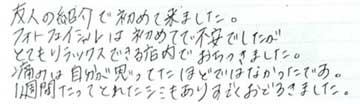 友人の紹介で初めて来ました。
フォトフェイシャルは初めてで不安でしたが
とてもリラックスできる店内でおちつきました。
痛みは自分が思ってたほどではなかったであ。
1週間たってとれたシミもありすごくおどろきました。